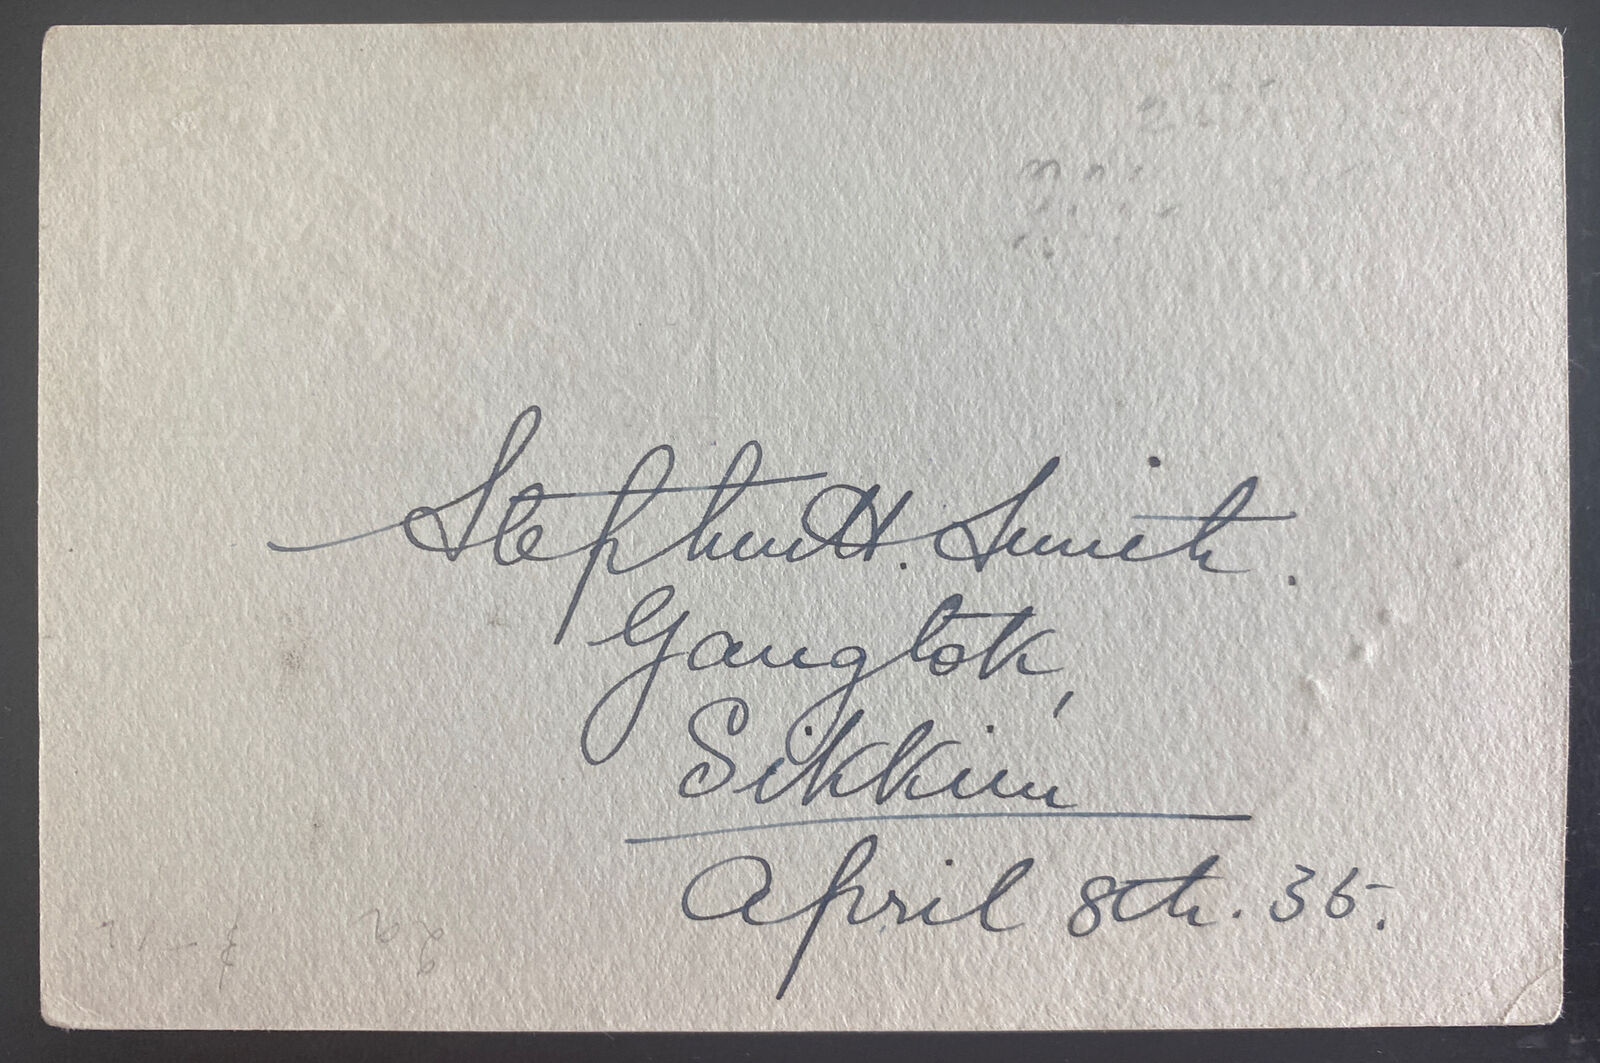 Stephen H. Smith.
Gangtok,
Sikkim
April 8th. 35.